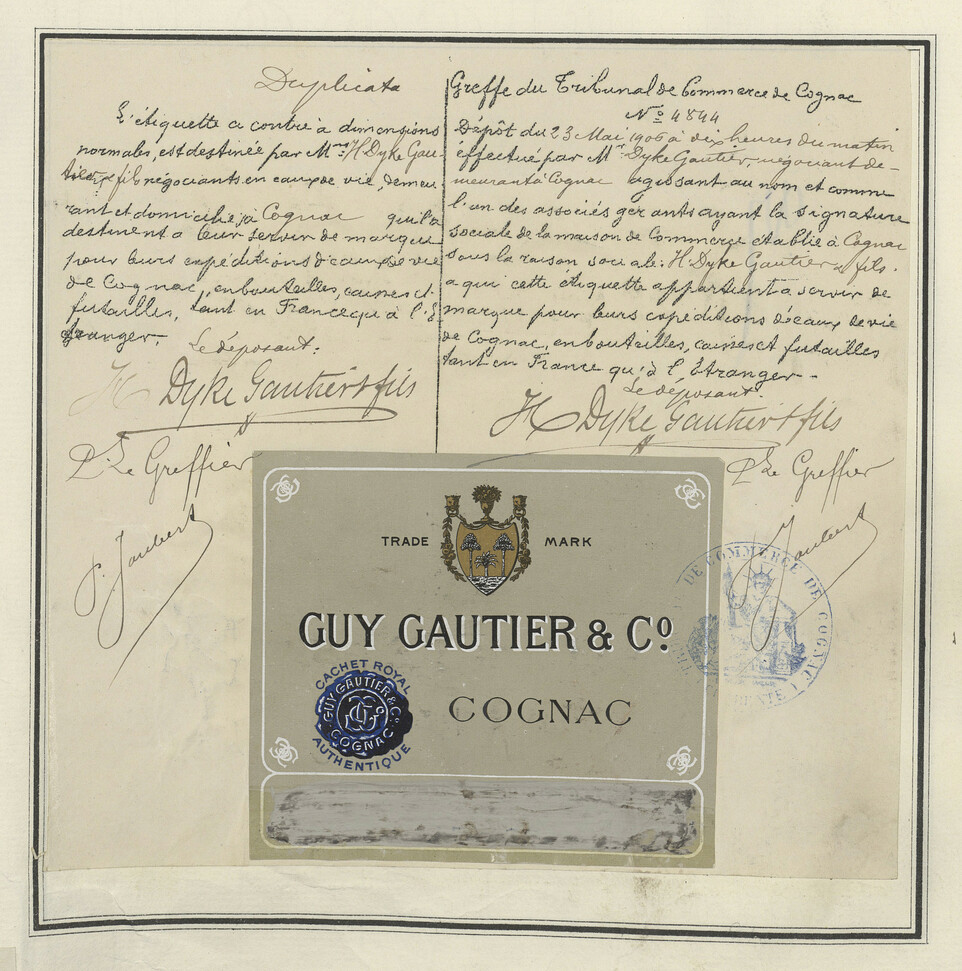 Duplicata
L'étiquette ci contre à dimensions
normales, est destinée par Mrs H. Dyke Gau-
tier & fils négociants en eaux de vie, demeu
rant et domiciliés à Cognac qui la
destinent à leur servir de marque
pour leurs expéditions d'eaux de vie
de Cognac, en bouteilles, caisses et
futailles, tant en France qu'à l'É
tranger.
Le déposant:
H Dyke Gautier & fils
Pr Le Greffier
P. Jaubert
Greffe du Tribunal de Commerce de Cognac
No 4844
Dépôt du 23 Mai 1906 à dix heures du matin
effectué par Mr Dyke Gautier, négociant de-
meurant à Cognac agissant au nom et comme
l'un des associés gérants ayant la signature
sociale de la maison de Commerce établie à Cognac
sous la raison sociale: H. Dyke Gautier & fils.
a qui cette étiquette appartient a servir de
marque pour leurs expéditions d'eaux de vie
de Cognac, en bouteilles, caisses et futailles
tant en France qu'à l'Étranger.-
Le déposant.
H Dyke Gautier & fils
Pr Le Greffier
Jaubert
DE COMMERCE DE COGNAC
TRADE MARK
GUY GAUTIER & Co.
COGNAC
CACHET ROYAL
GUY GAUTIER & Co.
COGNAC
AUTHENTIQUE